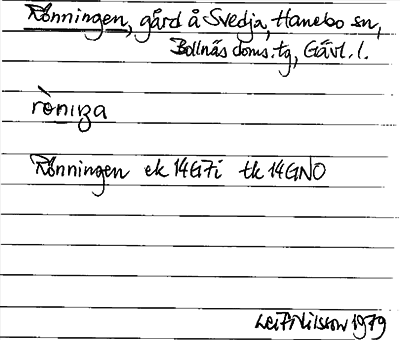 Rönningen, gård å Svedja, Hanebo sn,
Bollnäs doms.tg, Gävl. l.
rö̀niŋa
Rönningen ek 14G7i tk 14GNO
Leif Nilsson 1979